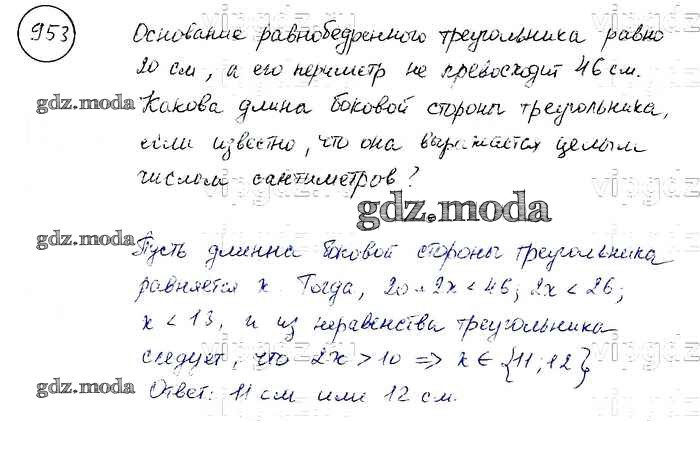 953
Основание равнобедренного треугольника равно
20 см, а его периметр не превосходит 46 см.
gdz.moda
Какова длина боковой стороны треугольника,
если известно, что она выражается целым
числом сантиметров?
gdz.moda
gdz.moda
Пусть длинна боковой стороны треугольника
равняется x. Тогда, 20+2x<46; 2x<26;
x<13, и из неравенства треугольника
следует, что 2x>10 => x ∈ {11; 12}
gdz.moda
Ответ: 11 см или 12 см.
vipgdz